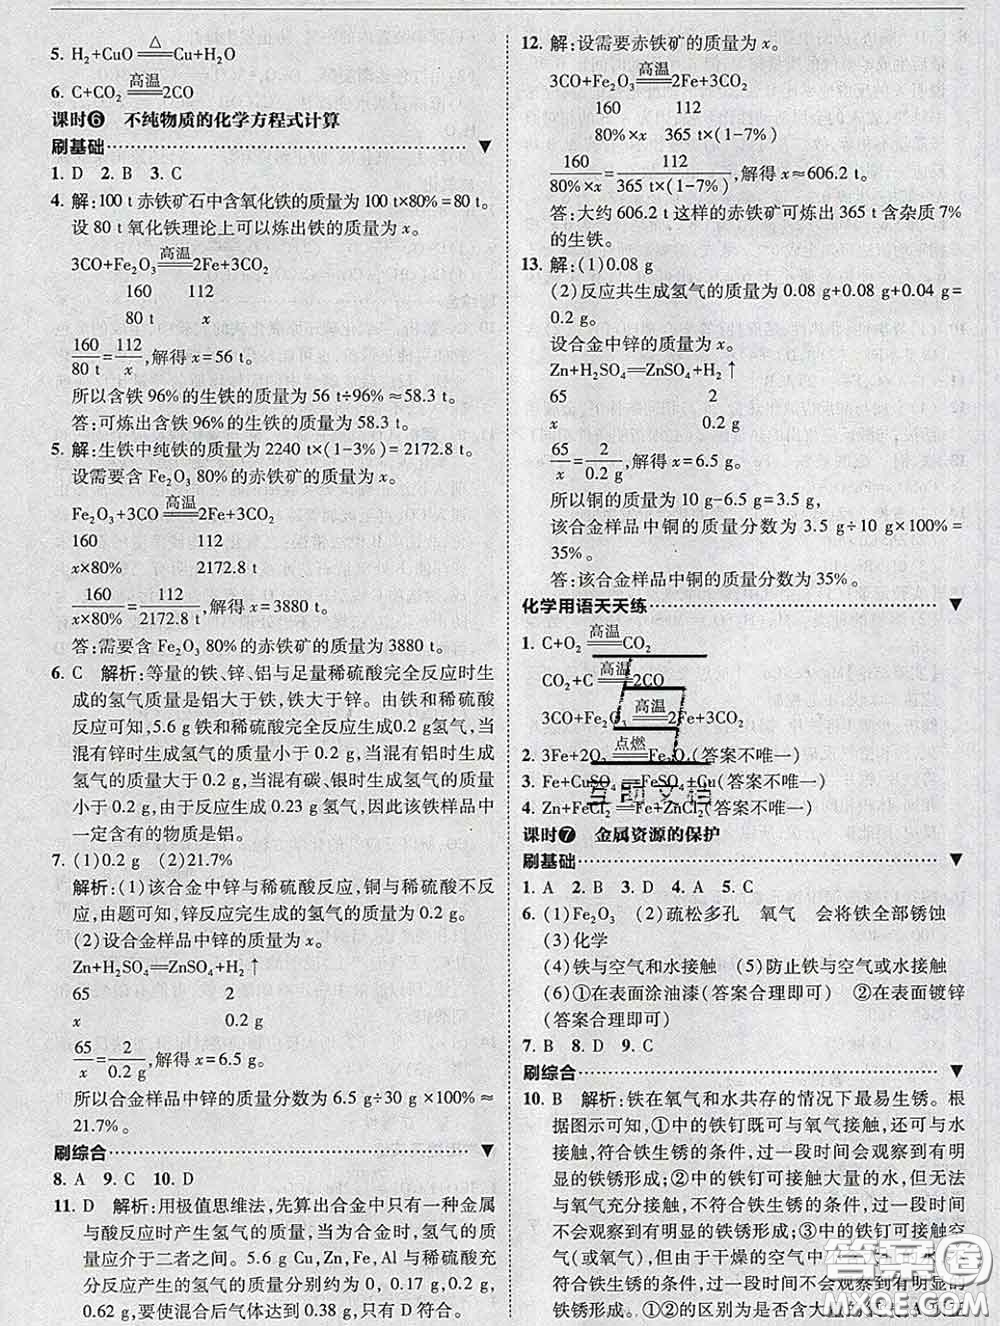 5. H₂+CuO =△= Cu+H₂O
6. C+CO₂ =高温= 2CO
课时❻ 不纯物质的化学方程式计算
刷基础
1. D 2. B 3. C
4. 解:100 t赤铁矿石中含氧化铁的质量为100 t×80%=80 t。
设80 t氧化铁理论上可以炼出铁的质量为x。
3CO+Fe₂O₃ =高温= 2Fe+3CO₂
160 112
80 t x
160/80 t=112/x,解得x=56 t。
所以含铁96%的生铁的质量为56 t÷96%≈58.3 t。
答:可炼出含铁96%的生铁的质量为58.3 t。
5. 解:生铁中纯铁的质量为2240 t×(1-3%)=2172.8 t。
设需要含Fe₂O₃ 80%的赤铁矿的质量为x。
Fe₂O₃+3CO =高温= 2Fe+3CO₂
160 112
x×80% 2172.8 t
160/x×80%=112/2172.8 t,解得x=3880 t。
答:需要含Fe₂O₃ 80%的赤铁矿的质量为3880 t。
6. C 解析:等量的铁、锌、铝与足量稀硫酸完全反应时生
成的氢气质量是铝大于铁,铁大于锌。由铁和稀硫酸
反应可知,5.6 g铁和稀硫酸完全反应生成0.2 g氢气,当
混有锌时生成氢气的质量小于0.2 g,当混有铝时生成
氢气的质量大于0.2 g,当混有碳、银时生成氢气的质量
小于0.2 g,由于反应生成0.23 g氢气,因此该铁样品中
一定含有的物质是铝。
7. (1)0.2 g (2)21.7%
解析:(1)该合金中锌与稀硫酸反应,铜与稀硫酸不反
应,由题可知,锌反应完生成的氢气的质量为0.2 g。
(2)设合金样品中锌的质量为x。
Zn+H₂SO₄══ZnSO₄+H₂↑
65 2
x 0.2 g
65/x=2/0.2 g,解得x=6.5 g。
所以合金样品中锌的质量分数为6.5 g÷30 g×100%≈
21.7%。
刷综合
8. A 9. C 10. D
11. D 解析:用极值思维法,先算出合金中只有一种金属
与酸反应时产生氢气的质量,当为合金时,氢气的质
量应介于二者之间。5.6 g Cu,Zn,Fe,Al与稀硫酸充
分反应产生的氢气的质量分别约为0,0.17 g,0.2 g,
0.62 g,要使混合后气体达到0.38 g,只有D符合。
12. 解:设需要赤铁矿的质量为x。
3CO+Fe₂O₃ =高温= 2Fe+3CO₂
160 112
80%×x 365 t×(1-7%)
160/80%×x=112/365 t×(1-7%),解得x≈606.2 t。
答:大约606.2 t这样的赤铁矿可炼出365 t含杂质7%
的生铁。
13. 解:(1)0.08 g
(2)反应共生成氢气的质量为0.08 g+0.08 g+0.04 g=
0.2 g。
设合金中锌的质量为x。
Zn+H₂SO₄══ZnSO₄+H₂↑
65 2
x 0.2 g
65/x=2/0.2 g,解得x=6.5 g。
所以铜的质量为10 g-6.5 g=3.5 g,
该合金样品中铜的质量分数为3.5 g÷10 g×100%=
35%。
答:该合金样品中铜的质量分数为35%。
化学用语天天练
1. C+O₂ =高温= CO₂
CO₂+C =高温= 2CO
3CO+Fe₂O₃ =高温= 2Fe+3CO₂
2. 3Fe+2O₂ =点燃= Fe₃O₄(答案不唯一)
3. Fe+CuSO₄══FeSO₄+Cu(答案不唯一)
4. Zn+FeCl₂══Fe+ZnCl₂(答案不唯一)
课时❼ 金属资源的保护
刷基础
1. A 2. B 3. D 4. A 5. C
6. (1)Fe₂O₃ (2)疏松多孔 氧气 会将铁全部锈蚀
(3)化学
(4)铁与空气和水接触 (5)防止铁与空气或水接触
(6)①在表面涂油漆(答案合理即可) ②在表面镀锌
(答案合理即可)
7. B 8. D 9. C
刷综合
10. B 解析:铁在氧气和水共存的情况下最易生锈。根
据图示可知,①中的铁钉既可与氧气接触,还可与水
接触,符合铁生锈的条件,过一段时间会观察到有明
显的铁锈形成;②中的铁钉可接触大量的水,但无法
与氧气充分接触,不符合铁生锈的条件,过一段时间
不会观察到有明显的铁锈形成;③中的铁钉可接触空
气(或氧气),但由于干燥的空气中
符合铁生锈的条件,过一段时间不会观察到有明显的
铁锈形成。①②的区别为是否含大
答案圈
MXQE.COM